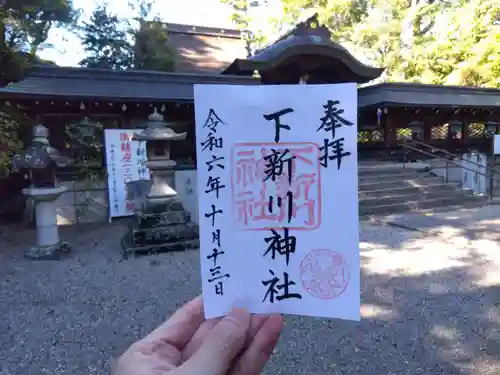 奉拝
下新川神社
下新川
神社
令和六年十月十三日
御鎮座